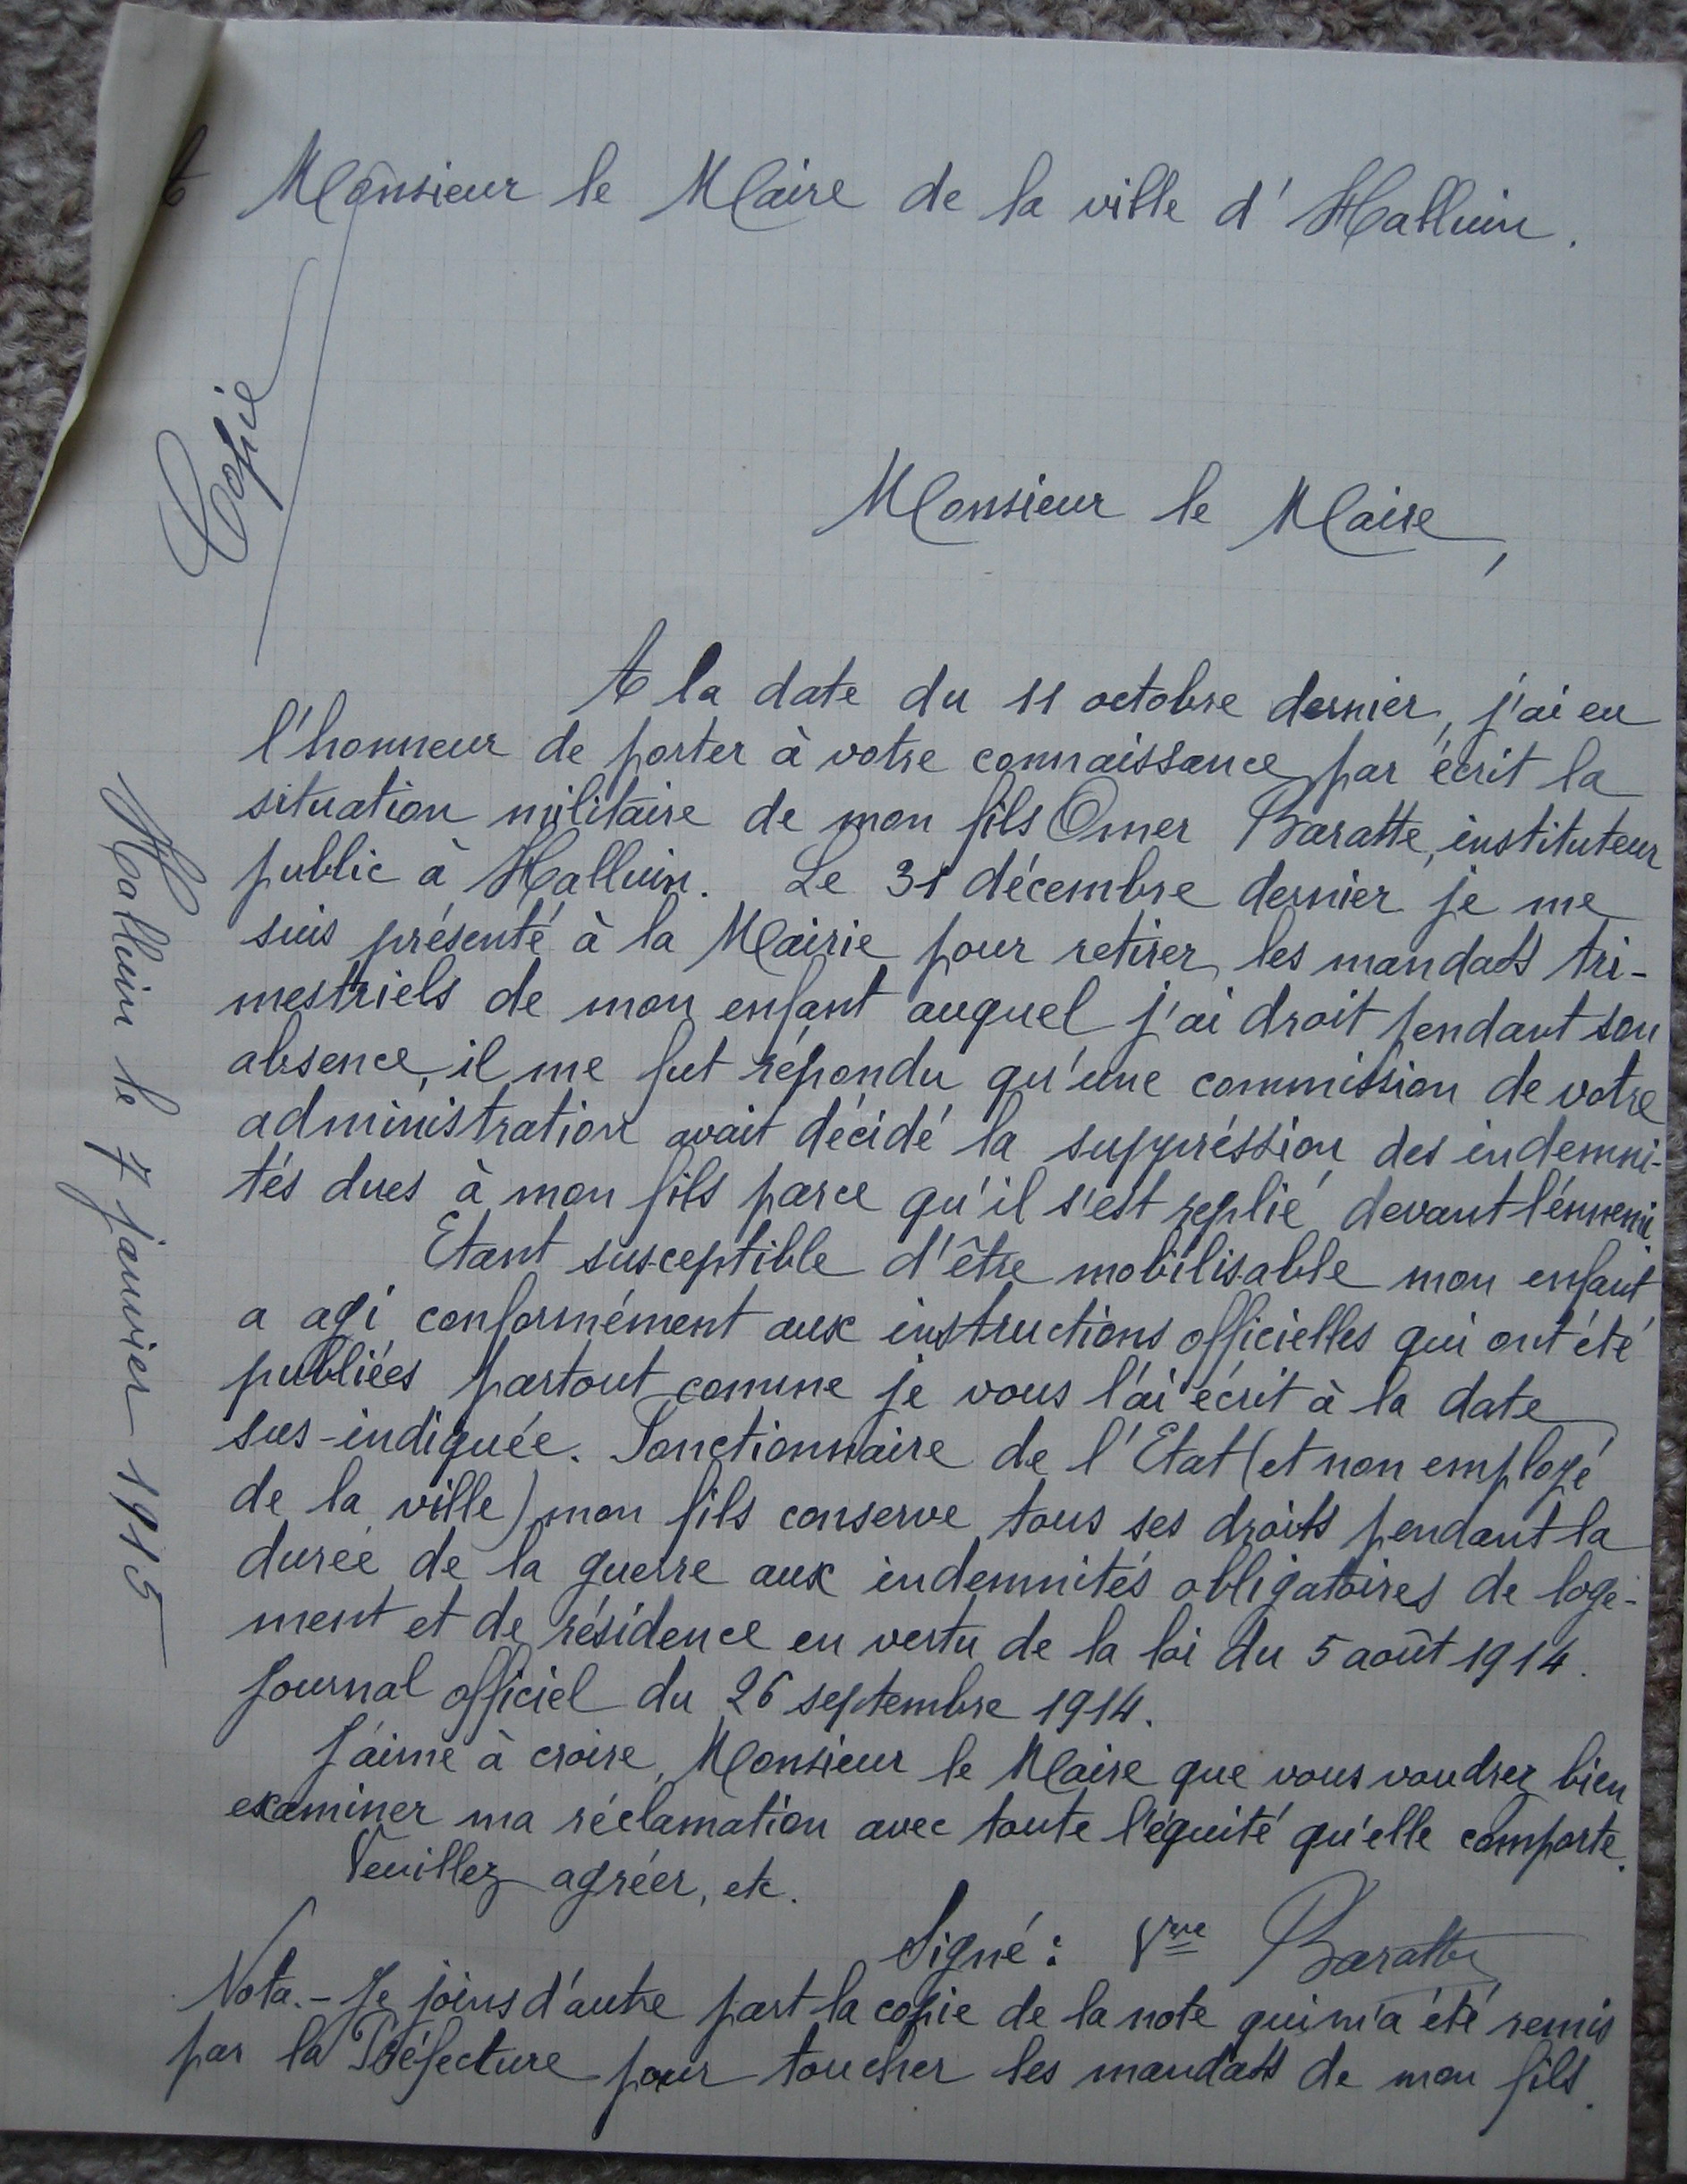 A Monsieur le Maire de la ville d'Halluin.
Copie
Monsieur le Maire,
A la date du 11 octobre dernier, j'ai eu
l'honneur de porter à votre connaissance par écrit la
situation militaire de mon fils Omer Baratte, instituteur
public à Halluin. Le 31 décembre dernier je me
suis présenté à la Mairie pour retirer les mandats tri-
mestriels de mon enfant auquel j'ai droit pendant son
absence, il me fut répondu qu'une commission de votre
administration avait décidé la suppréssion des indemni-
tés dues à mon fils parce qu'il s'est replié devant l'énnemi.
Etant susceptible d'être mobilisable mon enfant
a agi conformément aux instructions officielles qui ont été
publiées partout comme je vous l'ai écrit à la date
sus-indiquée. Fonctionnaire de l'Etat (et non employé
de la ville) mon fils conserve tous ses droits pendant la
durée de la guerre aux indemnités obligatoires de loge-
ment et de résidence en vertu de la loi du 5 août 1914.
Journal officiel du 26 septembre 1914.
J'aime à croire, Monsieur le Maire que vous voudrez bien
examiner ma réclamation avec toute l'équité qu'elle comporte.
Veuillez agréer, etc.
Signé : Vve Baratte
Nota. - Je joins d'autre part la copie de la note qui m'a été remis
par la Préfecture pour toucher les mandats de mon fils.
Halluin le 7 janvier 1915